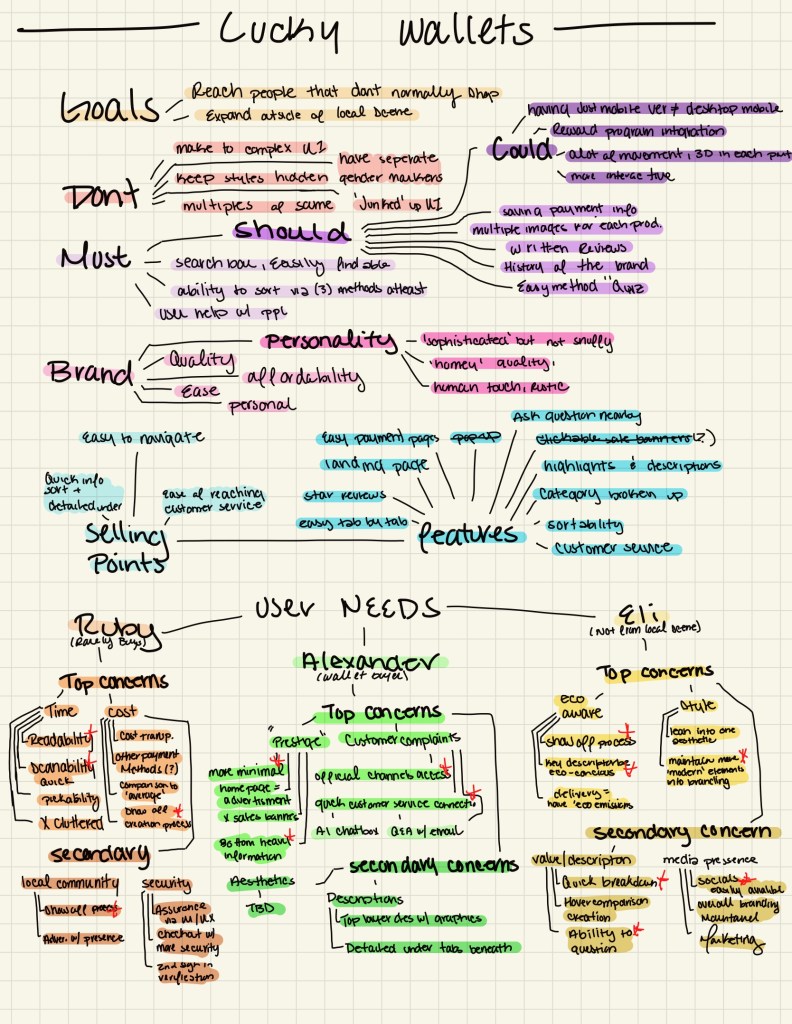 Lucky Wallets
Goals
Reach people that dont normally shop
Expand outside of local scene
Dont
make to complex UI
keep styles hidden
multiples of same
have seperate
gender markers
'Junked' up UI
Could
having just mobile ver ≠ desktop mobile
Reward program intigration
alot of movement, 3D in each part
more interactive
Must
Should
search bar, Easily findable
ability to sort via (3) methods atleast
user help w/ ppl
saving payment info
multiple images for each prod.
written Reviews
History of the brand
Easy method "Quiz
Brand
Personality
Quality
affordability
Ease
personal
'sophisticated' but not snuffy
'homey' quality,
human touch, Rustic
Selling
Points
Easy to navigate
Quick info
sort +
detailed under
Ease of reaching
customer service
features
Easy payment pages
pop-up
landing page
star reviews
easy tab by tab
Ask question nearby
clickable sale banners (?)
highlights & descriptions
Category broken up
sortability
Customer service
USER NEEDS
Ruby
(Rarely Buys)
Top concerns
Time
Readability
Scanability
Quick
pickability
X Cluttered
cost
Cost transp.
other payment
Methods (?)
comparison to
'average'
Show off
creation process
secondary
local community
show off process
Adver. w/ presence
security
Assurance
via UI/UX
checkout w/
more security
2nd sign in
verification
Alexander
(wallet buyer)
Top concerns
"Prestige"
more minimal
home page =
advertisment
X sales banners
Bottom heavy
information
Aesthetics
TBD
Customer complaints
official channels access
quick customer service connects
AI chatbox
Q&A w/ email
secondary concerns
Descriptions
Top layer des w/ graphics
Detailed under tabs beneath
Eli
(Not from local scene)
Top concerns
eco
aware
show off process
key descriptors
eco-concious
delivery =
have 'eco emissions
style
lean into one
aesthetic
maintain more
'modern' elements
into branding
secondary concern
value/descripton
Quick breakdown
Hover comparison
creation
Ability to
question
media pressence
socials
easily availible
overall branding
Maintained
Marketing